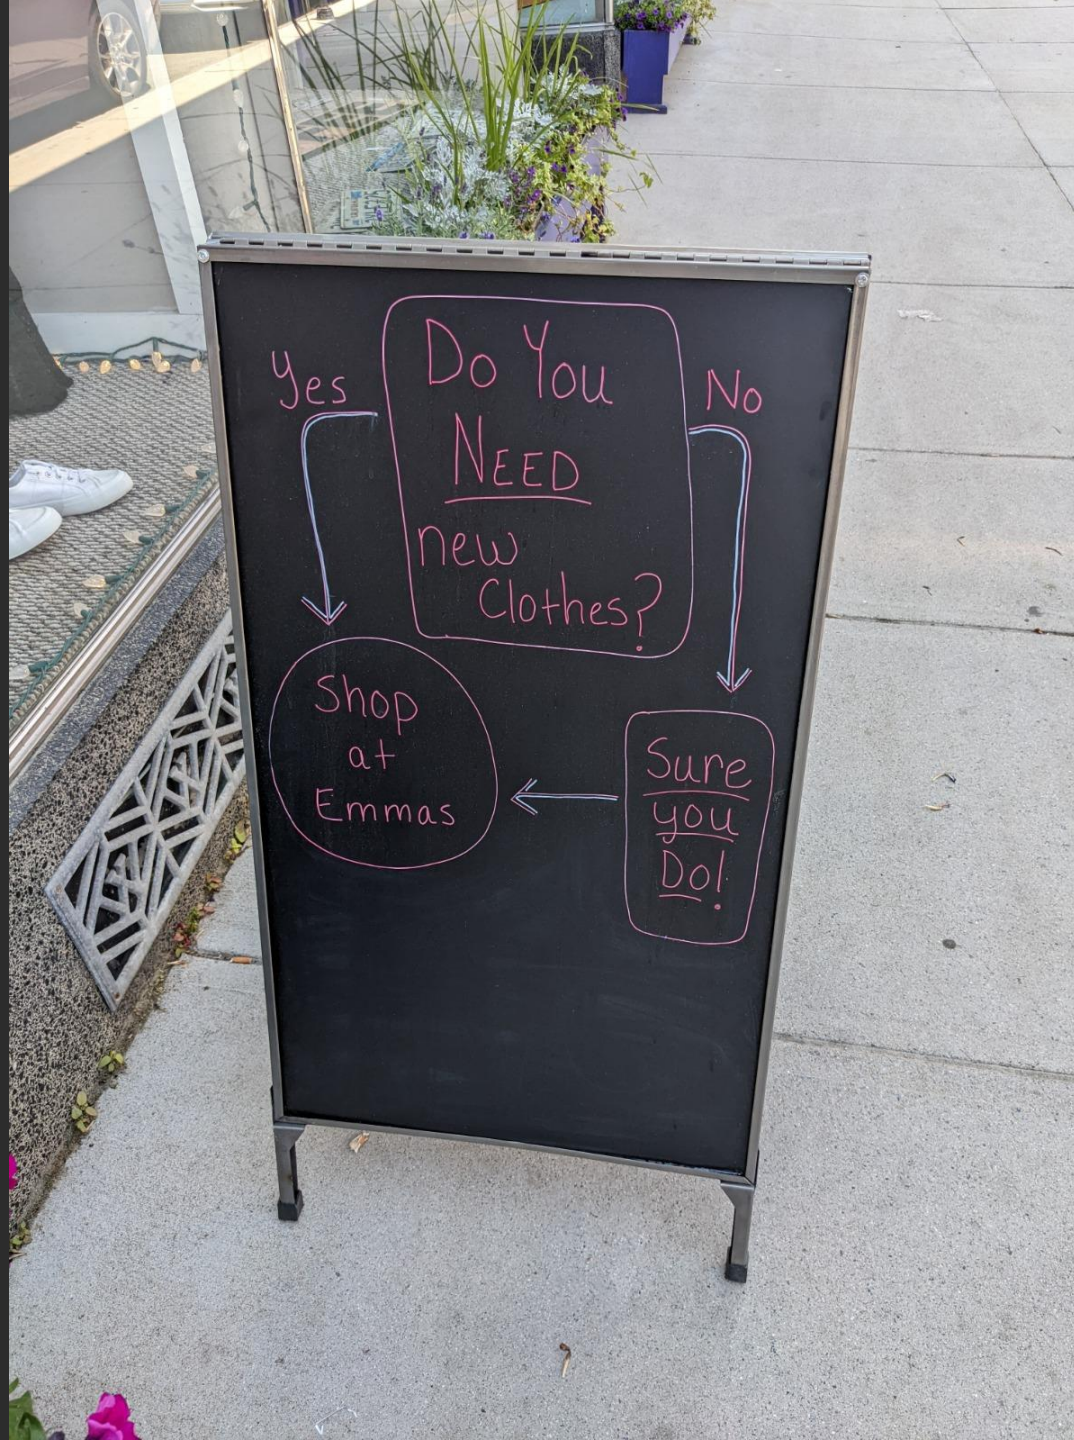 Do You
NEED
new
Clothes?
Yes
No
Shop
at
Emmas
Sure
you
Do!